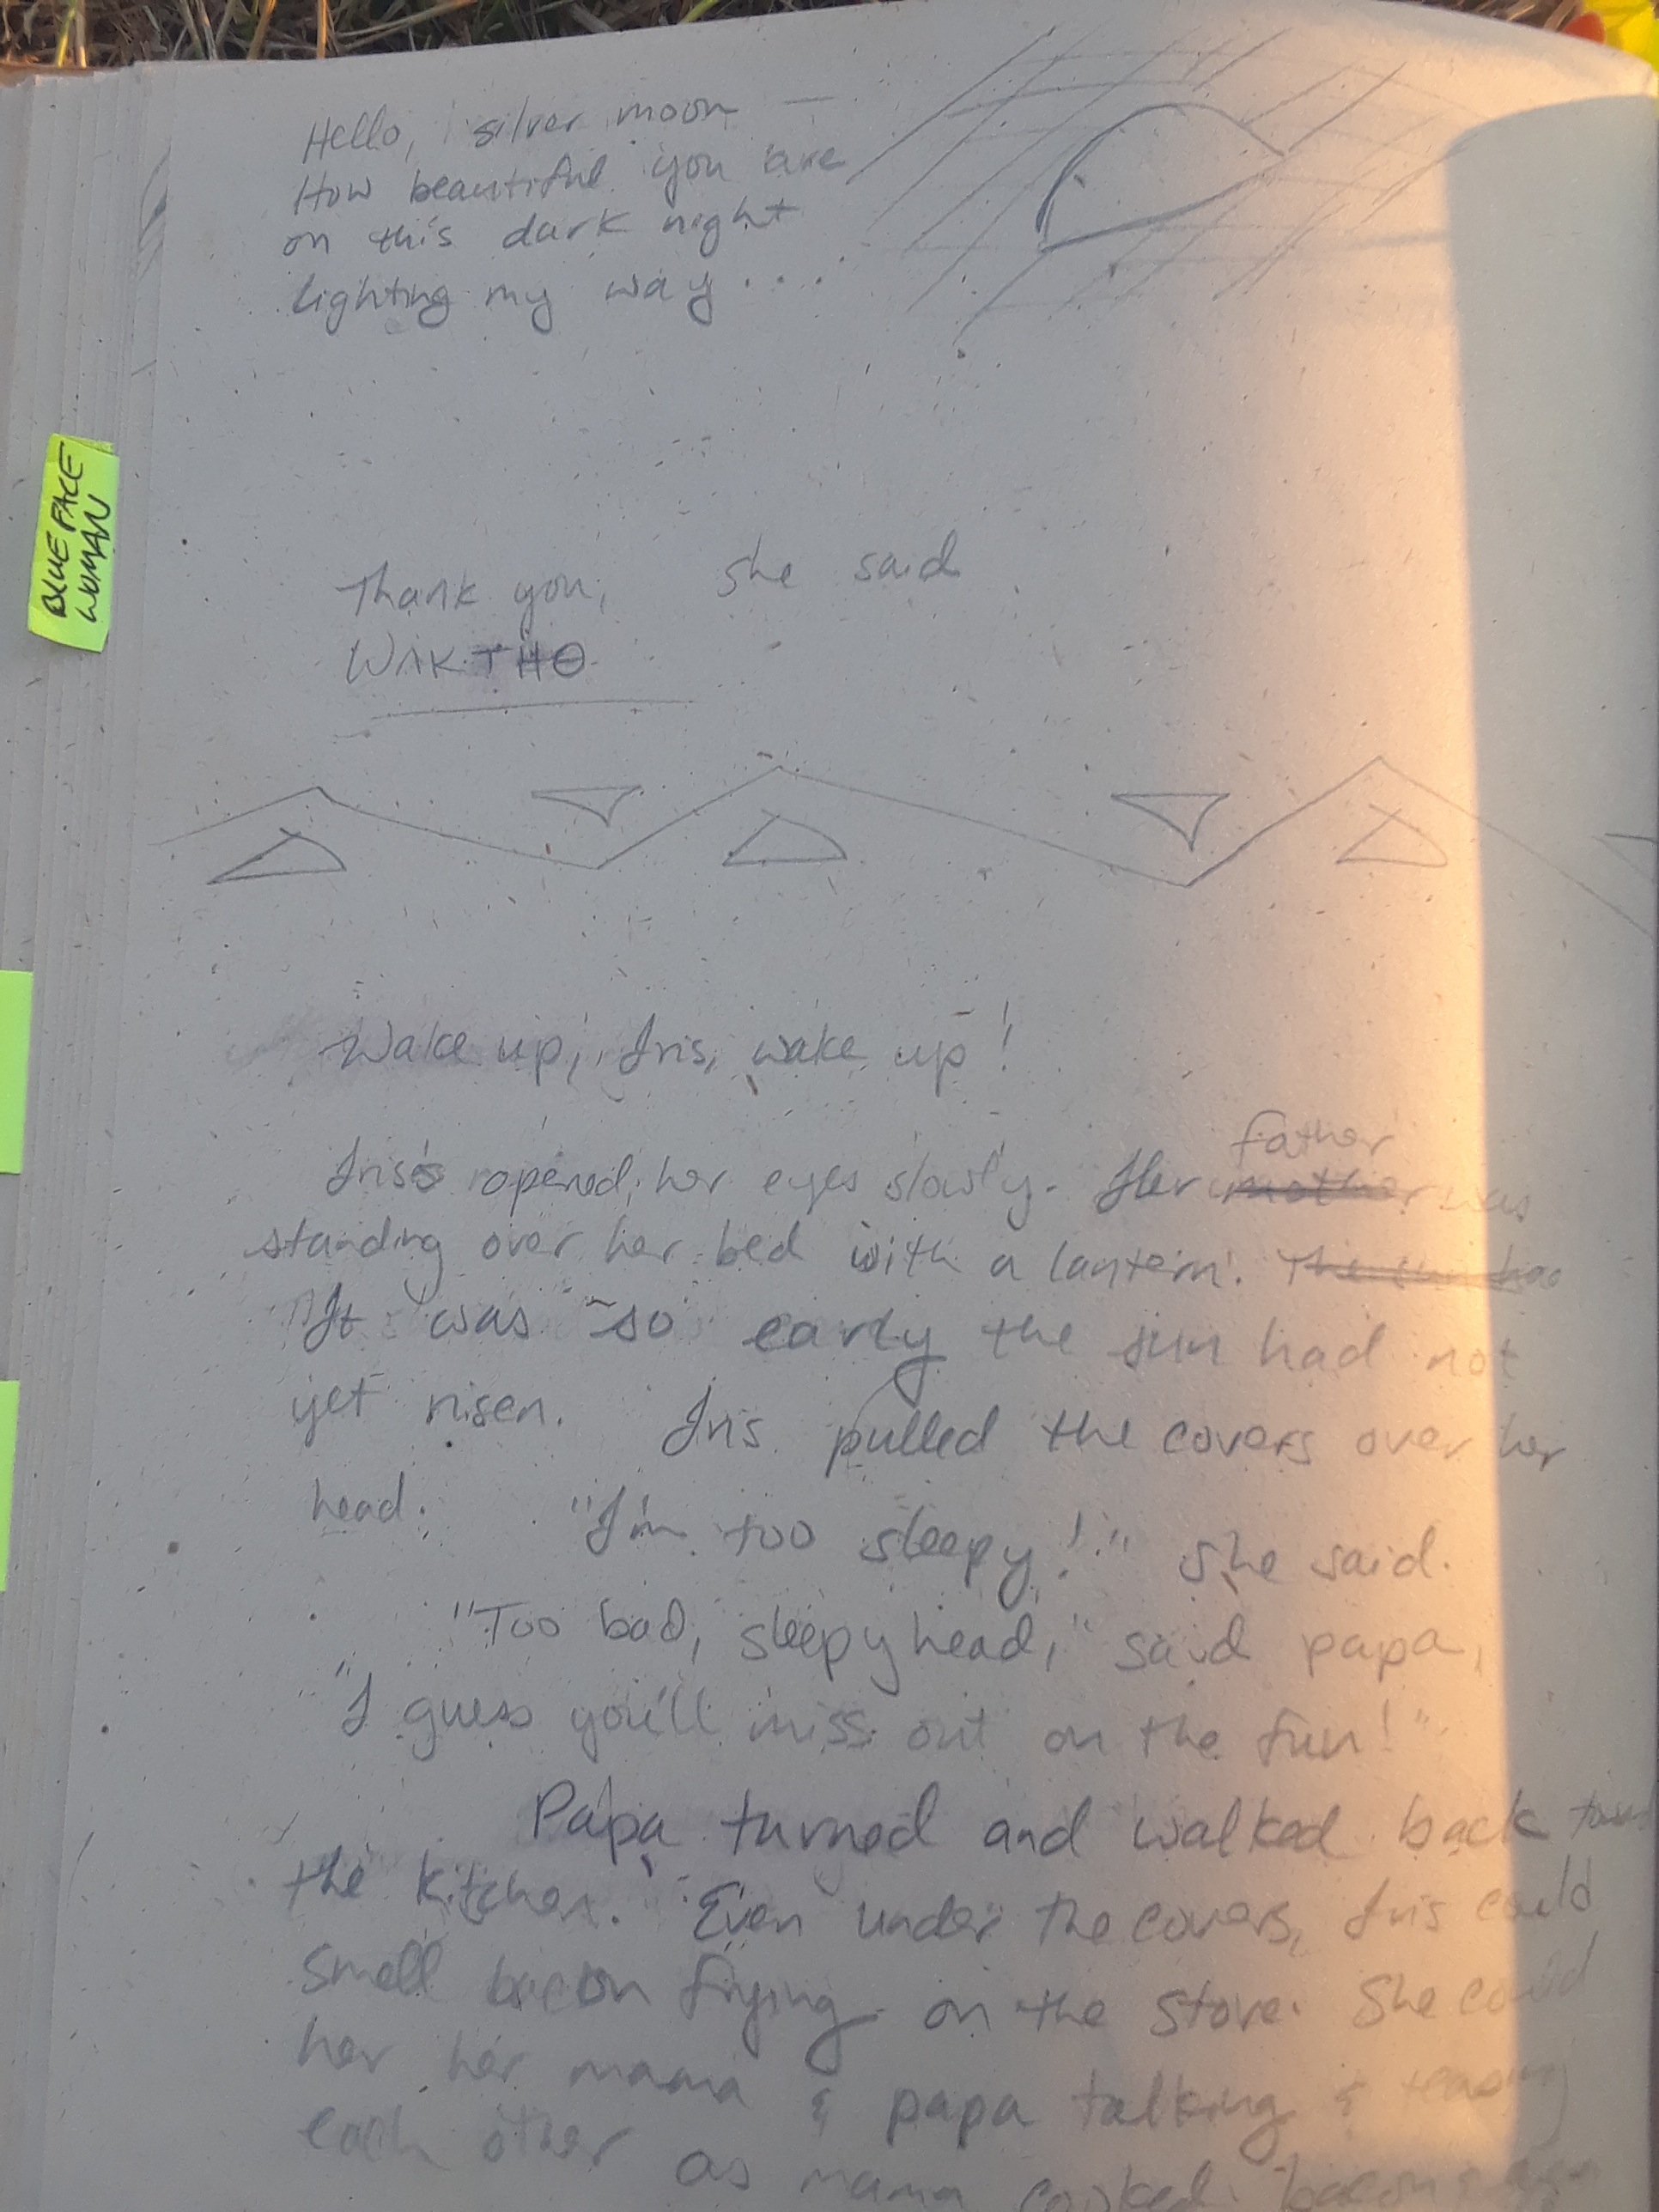 Hello, silver moon —
How beautiful you are
on this dark night
lighting my way....
BLUE FACE
WOMAN
Thank you, she said
Wake up, Iris, wake up!
father
Iris opened her eyes slowly. Her mother was
standing over her bed with a lantern. The sun has
It was so early the sun had not
yet risen. Iris pulled the covers over her
head. "I'm too sleepy!" she said.
"Too bad, sleepyhead," said papa,
"I guess you'll miss out on the fun!"
Papa turned and walked back
the kitchen. Even under the covers, Iris could
smell bacon frying on the stove. She could
her her mama & papa talking & teasing
each other as mama cooked bacon